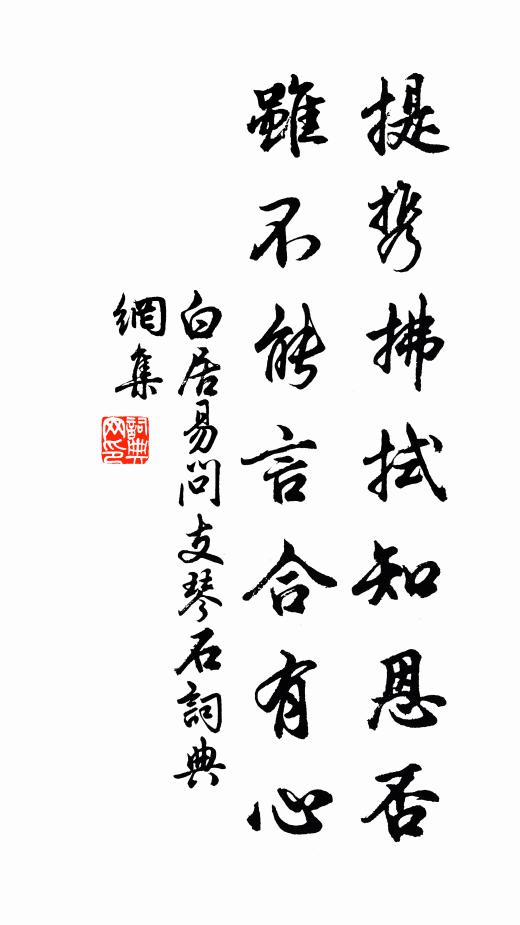 提携拂拭知恩否
雖不能言合有心
白居易問支琴石詞典
網集
詞典
网印